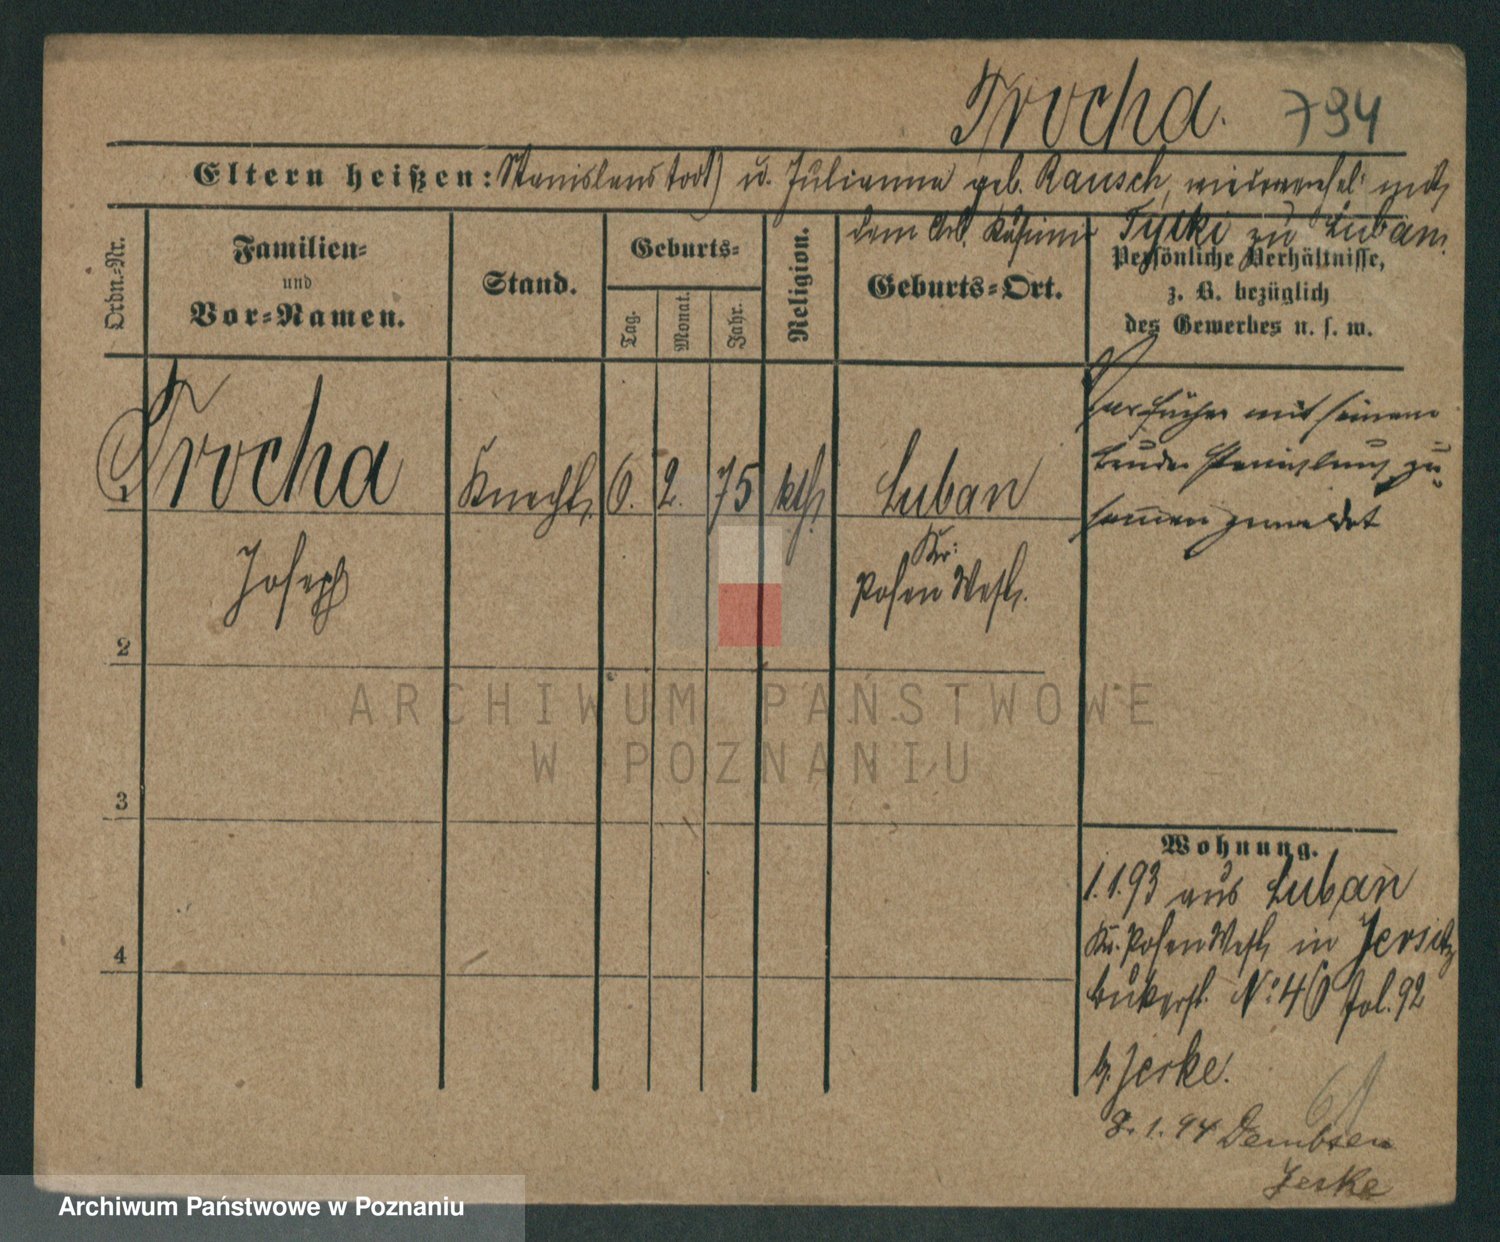 Trocha. 794
Eltern heißen: Stanislaus (todt) u. Julianna geb. Rausch, mit
dem Arb. Tyłki zu Luban.
Ordn.-Nr.
Familien-
und
Vor-Namen.
Stand.
Geburts-
Tag.
Monat.
Jahr.
Religion.
Geburts-Ort.
Persönliche Verhältnisse,
z. B. bezüglich
des Gewerbes u. s. w.
1 Trocha Knecht 6. 2. 75 kth. Luban
Kr.
Joseph Posen West.
war früher mit seinem
Bruder Stanislaus zu-
sammen gemeldet
2
3
4
Wohnung.
1.1.93 aus Luban
Kr. Posen West in Jersitz
Bukerst. No. 46 fol. 92
b. Jeske.
8.1.94 Dembsen
Jeske
ARCHIWUM PAŃSTWOWE
W POZNANIU
Archiwum Państwowe w Poznaniu